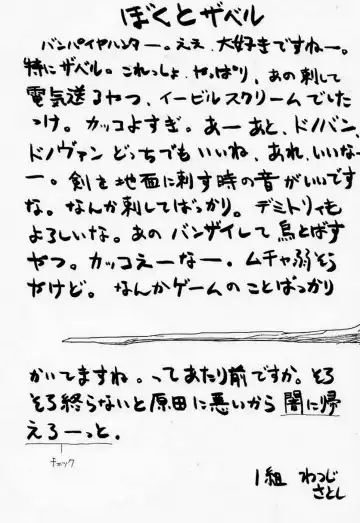 ぼくとザベル
バンパイヤハンター。ええ、大好きですねー。
特にザベル。これっしょ、やっぱり、あの刺して
電気送るやつ、イービルスクリームでしたい
っけ。カッコよすぎ。あーあと、ドノバン、
ドノヴァンどっちでもいいね、あれ、いいな
ー。剣を地面に刺す時の音がいいです
な。なんか刺してばっかり。デミトリィも
よろしいな。あのバンザイして鳥とばす
やつ。カッコえーなー。ムチャ弱そう
だけど。なんかゲームのことばっかり
かいてますね。ってあたり前ですか。そろ
そろ終らないと原田に悪いから闇に帰
えろーっと。
チェック
1組 わつじ
さとし